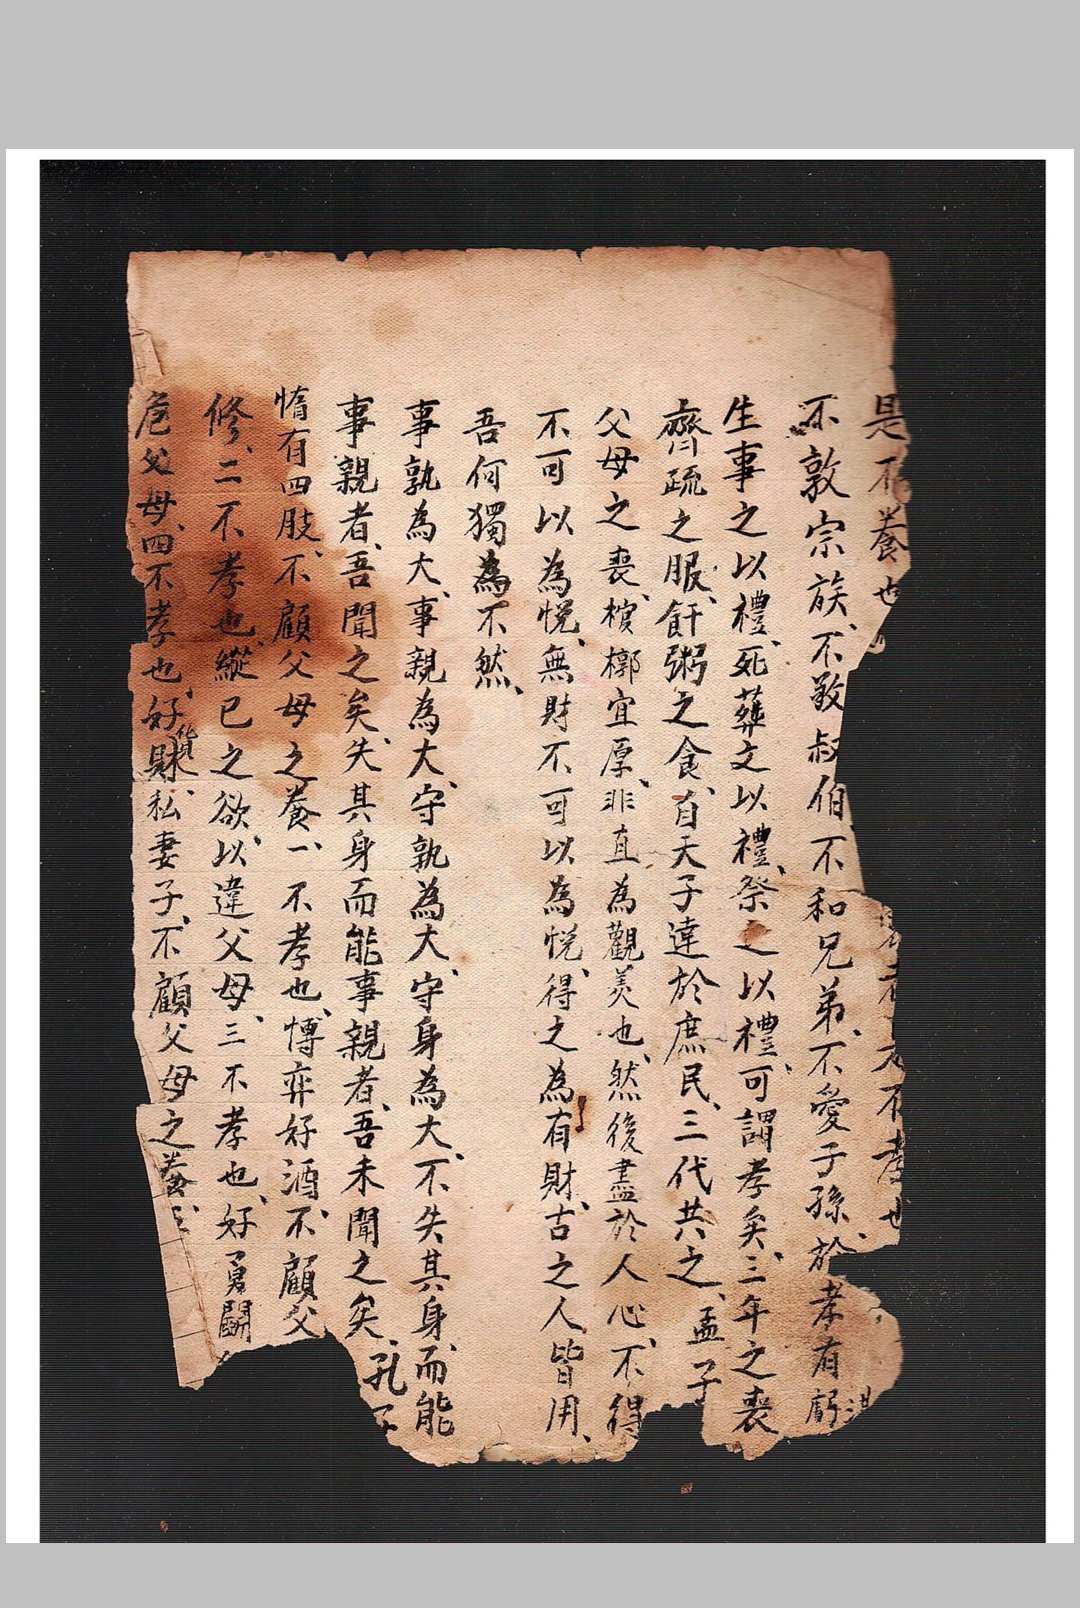 是不養也
不敦宗族、不敬叔伯不和兄弟、不愛子孫、於孝有虧
生事之以禮、死葬之以禮、祭之以禮、可謂孝矣、三年之喪
齊疏之服、飦粥之食、自天子達於庶民、三代共之、孟子
父母之喪、棺槨宜厚、非直為觀美也、然後盡於人心、不得
不可以為悅、無財不可以為悅、得之為有財、古之人皆用、
吾何獨為不然、
事孰為大、事親為大、守孰為大、守身為大、不失其身、而能
事親者、吾聞之矣、失其身而能事親者、吾未聞之矣、孔子
惰有四肢、不顧父母之養、一不孝也、博弈好酒、不顧父
修、二不孝也、縱己之欲、以違父母、三不孝也、好勇鬪
危父母、四不孝也、好財貨、私妻子、不顧父母之養、五